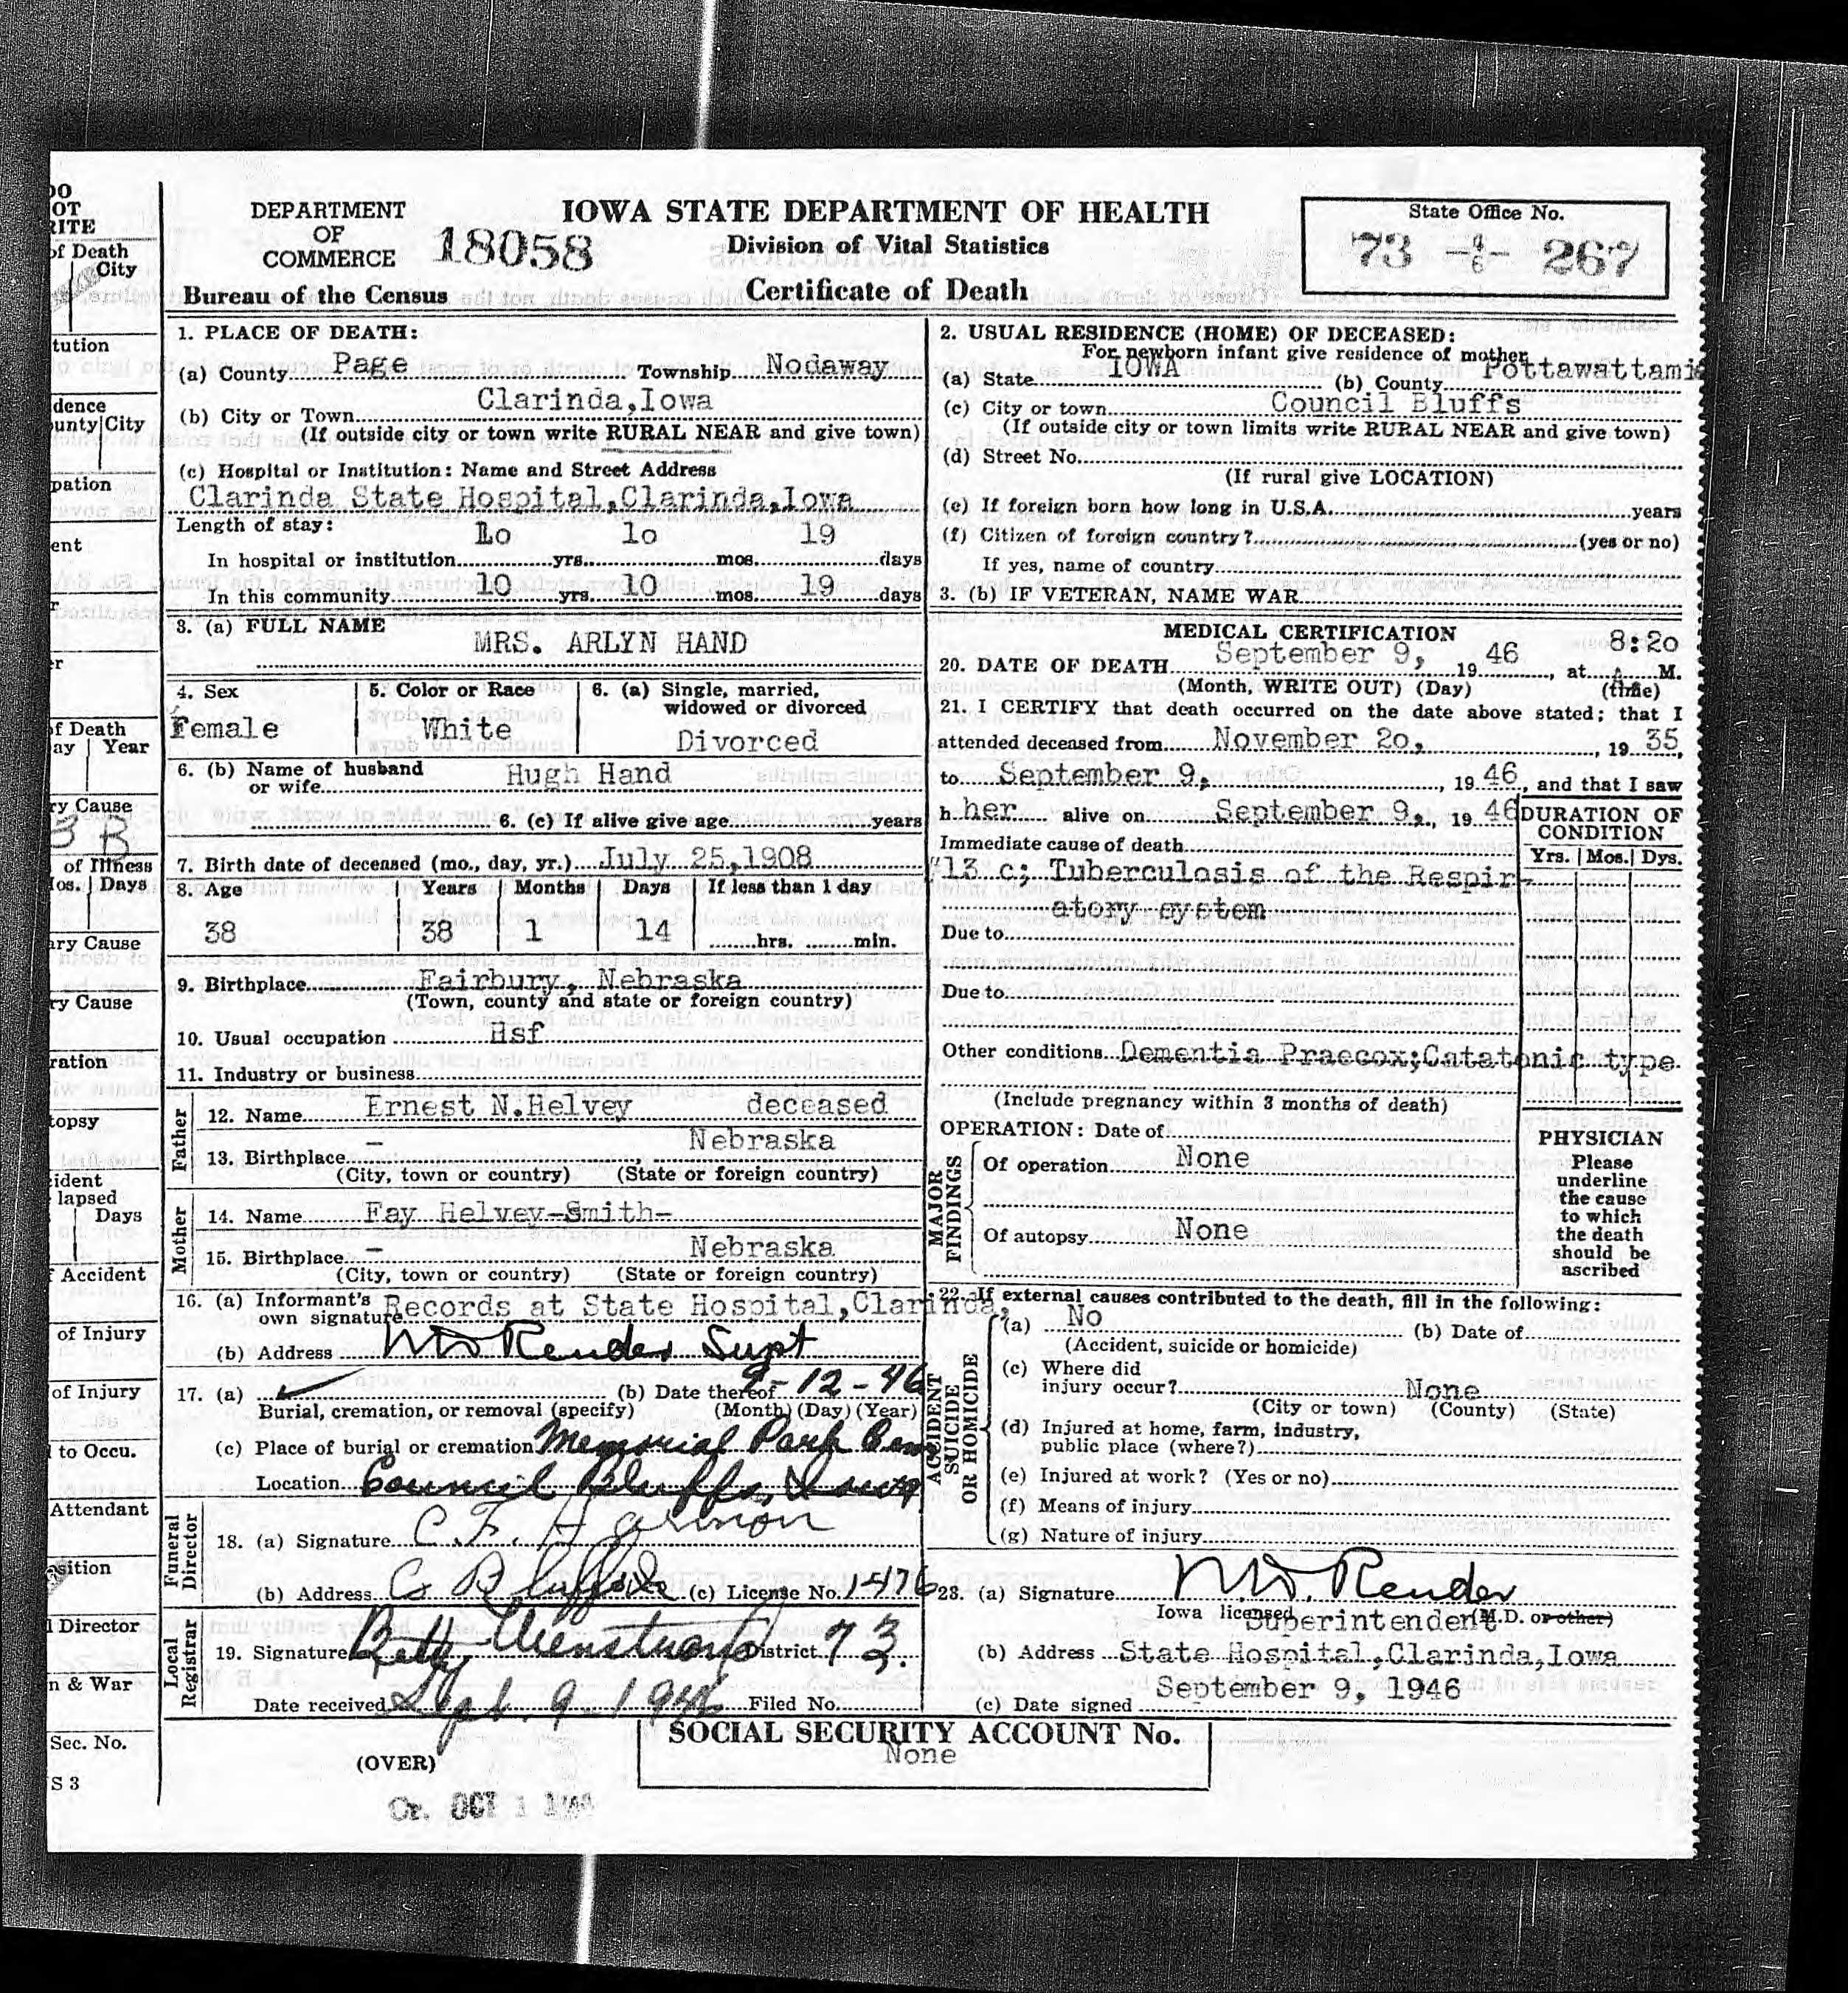 DEPARTMENT
OF
COMMERCE
Bureau of the Census
18058
IOWA STATE DEPARTMENT OF HEALTH
Division of Vital Statistics
Certificate of Death
State Office No.
73 -4/6- 267
1. PLACE OF DEATH:
(a) County Page Township Nodaway
(b) City or Town Clarinda,Iowa
(If outside city or town write RURAL NEAR and give town)
(c) Hospital or Institution: Name and Street Address
Clarinda State Hospital,Clarinda,Iowa
Length of stay:
In hospital or institution 1o yrs. 1o mos. 19 days
In this community 10 yrs. 10 mos. 19 days
2. USUAL RESIDENCE (HOME) OF DECEASED:
For newborn infant give residence of mother
(a) State IOWA (b) County Pottawattamie
(c) City or town Council Bluffs
(If outside city or town limits write RURAL NEAR and give town)
(d) Street No.
(If rural give LOCATION)
(e) If foreign born how long in U.S.A. years
(f) Citizen of foreign country? (yes or no)
If yes, name of country
3. (b) IF VETERAN, NAME WAR
3. (a) FULL NAME MRS. ARLYN HAND
4. Sex Female
5. Color or Race White
6. (a) Single, married,
widowed or divorced
Divorced
6. (b) Name of husband
or wife Hugh Hand
6. (c) If alive give age years
7. Birth date of deceased (mo., day, yr.) July 25,1908
8. Age Years Months Days If less than 1 day
38 38 1 14 hrs. min.
9. Birthplace Fairbury, Nebraska
(Town, county and state or foreign country)
10. Usual occupation Hsf
11. Industry or business
Father
12. Name Ernest N.Helvey deceased
13. Birthplace - , Nebraska
(City, town or country) (State or foreign country)
Mother
14. Name Fay Helvey-Smith-
15. Birthplace - Nebraska
(City, town or country) (State or foreign country)
16. (a) Informant's
own signature Records at State Hospital,Clarinda,
(b) Address M D Render Supt
17. (a) ✓ (b) Date thereof 9-12-46
Burial, cremation, or removal (specify) (Month) (Day) (Year)
(c) Place of burial or cremation Memorial Park Cem
Location Council Bluffs, Iowa
Funeral Director
18. (a) Signature C.F. Harmon
(b) Address Co Bluffs Ia (c) License No. 1476
Local Registrar
19. Signature Betty District 73.
Date received Sept. 9 - 1946 Filed No.
MEDICAL CERTIFICATION
20. DATE OF DEATH September 9, 19 46, at 8:20 A M.
(Month, WRITE OUT) (Day) (time)
21. I CERTIFY that death occurred on the date above stated; that I
attended deceased from November 2o, , 19 35,
to September 9, , 19 46, and that I saw
h her alive on September 9,, 19 46
DURATION OF
CONDITION
Yrs. Mos. Dys.
Immediate cause of death
#13 c; Tuberculosis of the Respir-
atory system
Due to
Due to
Other conditions Dementia Praecox;Catatonic type
(Include pregnancy within 3 months of death)
OPERATION: Date of
MAJOR FINDINGS
Of operation None
Of autopsy None
PHYSICIAN
Please
underline
the cause
to which
the death
should be
ascribed
22. If external causes contributed to the death, fill in the following:
ACCIDENT SUICIDE OR HOMICIDE
(a) No (b) Date of
(Accident, suicide or homicide)
(c) Where did
injury occur? None
(City or town) (County) (State)
(d) Injured at home, farm, industry,
public place (where?)
(e) Injured at work? (Yes or no)
(f) Means of injury
(g) Nature of injury
23. (a) Signature M D. Render
Iowa licensed (M.D. or other)
Superintendent
(b) Address State Hospital,Clarinda,Iowa
(c) Date signed September 9, 1946
SOCIAL SECURITY ACCOUNT No.
None
(OVER)
Cr. OCT 1 1946
DO
OT
RITE
of Death
City
tution
dence
unty City
pation
ent
of Death
ay Year
ry Cause
3 B
of Illness
Mos. Days
ary Cause
ry Cause
ration
topsy
ident
lapsed
Days
f Accident
of Injury
of Injury
to Occu.
Attendant
sition
Director
n & War
Sec. No.
S 3